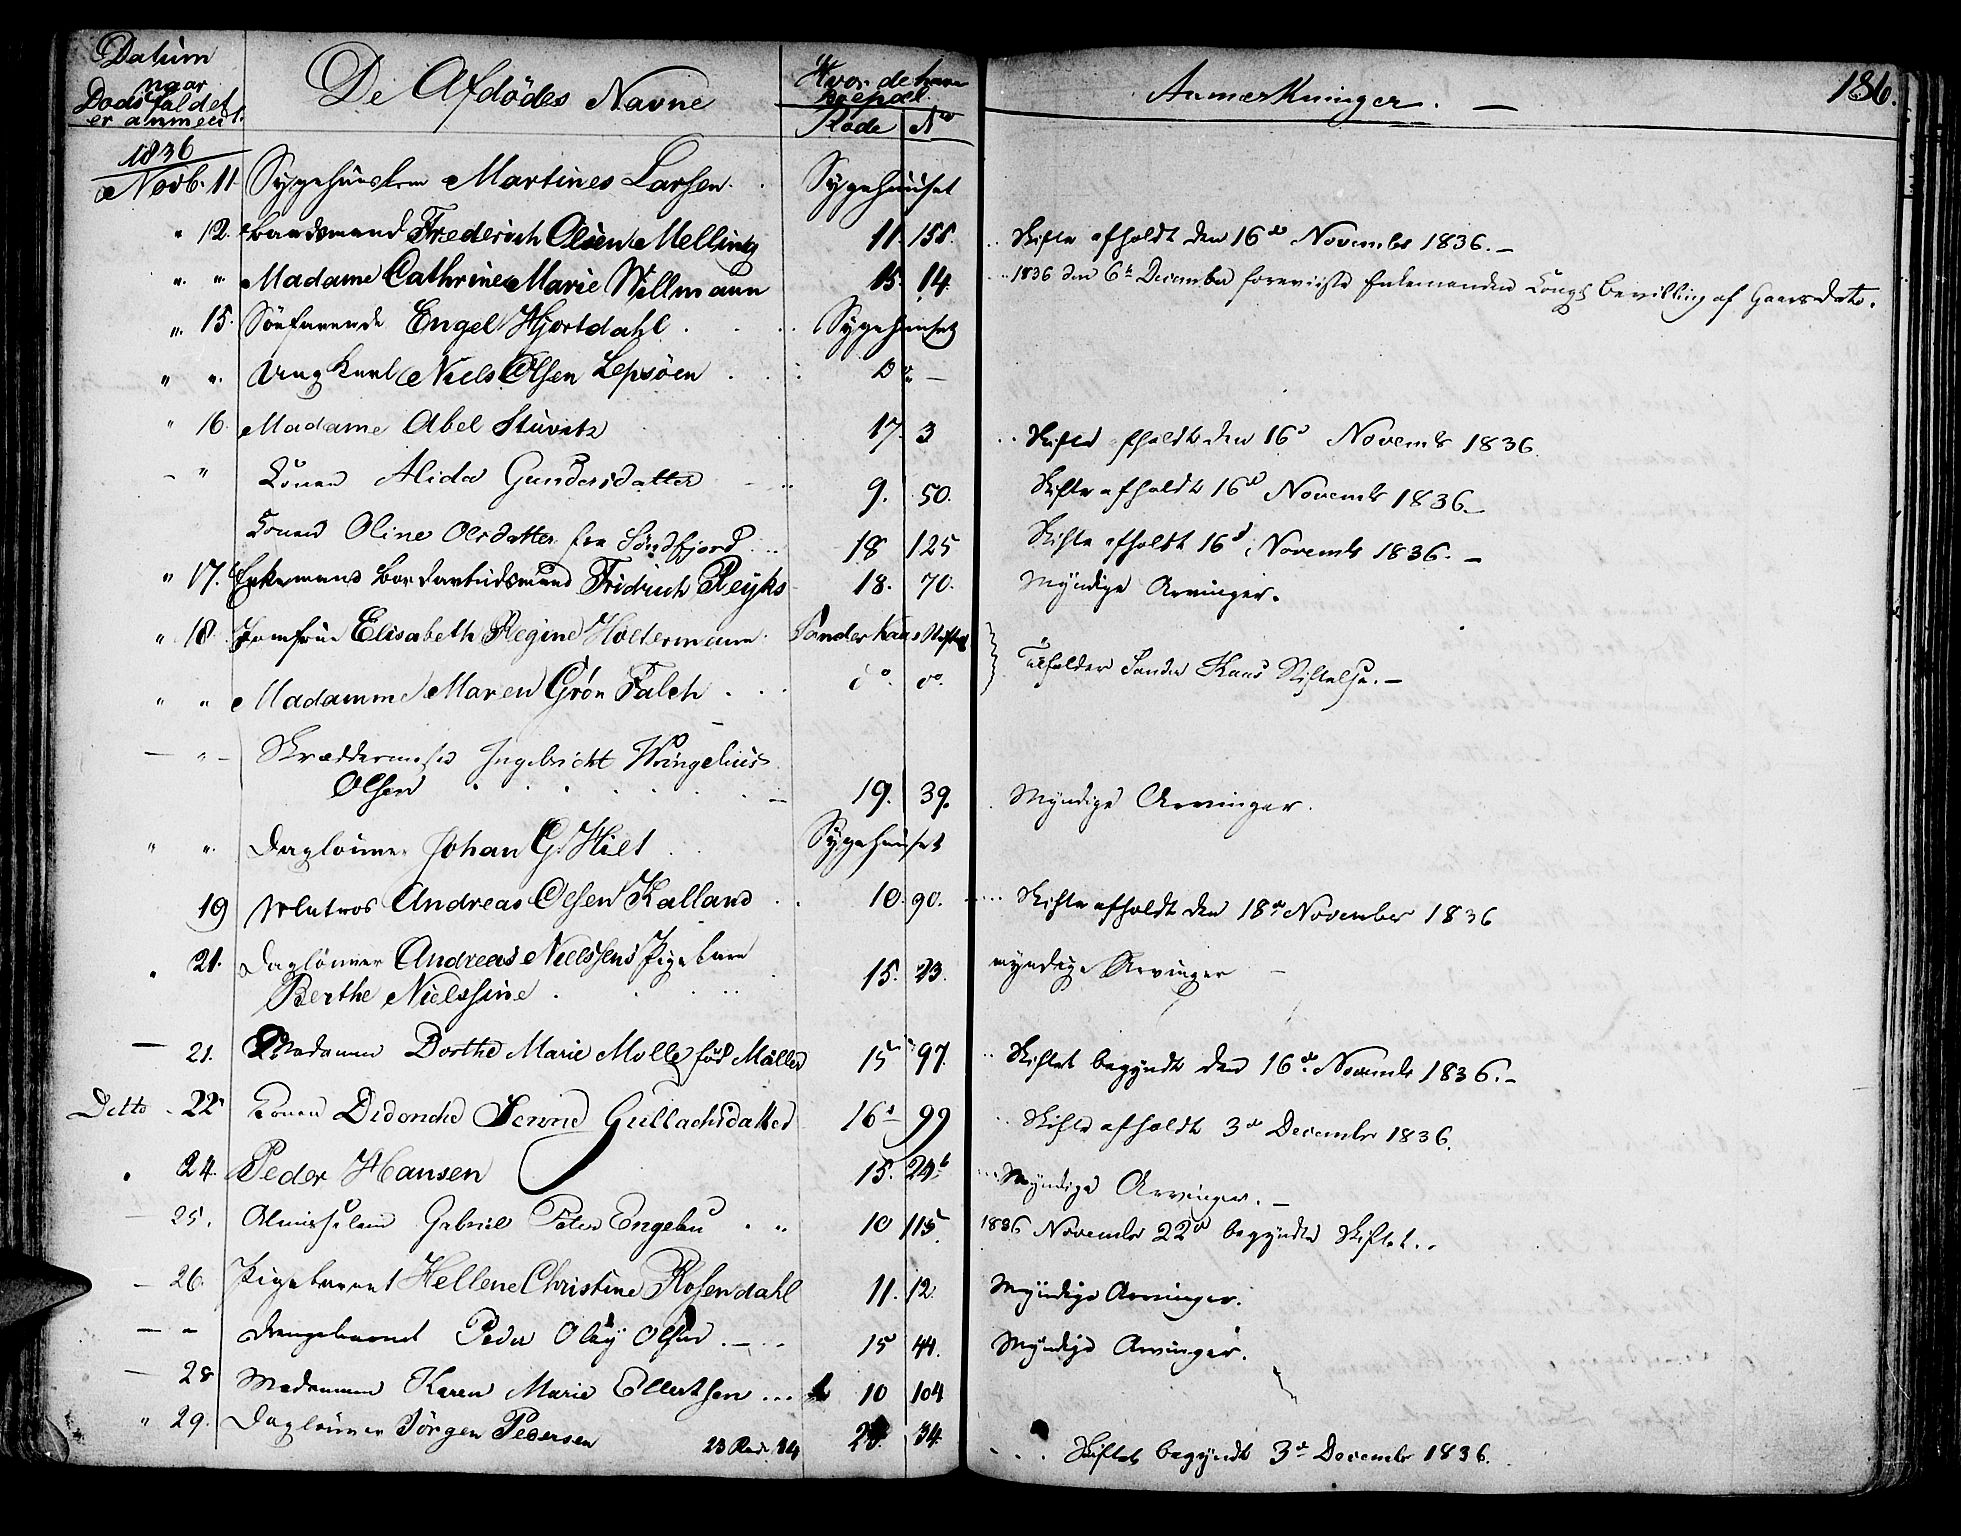 Datum
naar
Dødsfaldet
er anmeldt.
De Afdödes Navne
Hvor de have
boepæl.
Rode No
Anmerkninger. —
186.
1836
Novb. 11. Sygehuuslem Martines Larsen. Sygehuuset
" 12. Frederich Olsen Melling 11. 158. Skifte afholdt den 16de November 1836. —
" " Madame Cathrine Marie Willmann 15. 14. 1836 den 6te December foreviiste Enkemanden Kongl Bevilling af Gaarsdato.
" 15. Söefarende Engel Hjortdahl Sygehuuset
" " Ung Karl Niels Olsen Lepsöen Do —
" 16. Madame Abel Stüvitz 17. 3 Skifte afholdt den 16d November 1836.
— " Konen Alida Gundersdatter 9. 50. Skifte afholdt 16d November 1836.
Konen Oline Olsdatter fra Söndfjord 18 125 Skifte afholdt 16d November 1836. —
" 17. Enkemand Fridrich Reyks 18. 70. Myndige Arvinger.
" 18. Jomfrue Elisabeth Regine Holtermann Sander Kaas Stiftelse
" " Madamme Maren Grön Falch do do Tilfalder Sander Kaas Stiftelse. —
— " — Skræddermester Ingebricht Wingelius
Olsen 19. 39. Myndige Arvinger.
" " Daglönner Johan G. Hiel Sygehuuset
19 Matros Andreas Olsen Kalland 10. 90. Skifte afholdt den 18de November 1836
" 21. Daglönner Andreas Nielssens Pigebarn
Berthe Nielssine 15. 23. myndige Arvinger —
— 21. Madamm Dorthe Marie Molle föd Möller 15 97. Skiftet begyndt den 16de November 1836. —
Ditto 22 Konen Gullachsdatter 16 99 Skifte afholdt 3de December 1836.
" 24. Peder Hansen 15. 24b Myndige Arvinger. —
— 25. Almisselem Gabriel Peter 10 115 1836 November 22d begyndte Skiftet.
— 26. Pigebarnet Hellene Christine Rosendahl 11. 12. Myndige Arvinger.
— " Drengebarnet Peder Olai Olsen 15 44. Myndige Arvinger.
— 28 Madamme Karen Marie Ellertsen 10 104
" 29. Daglönner Jörgen Pedersen 23 Rod. 34 34. Skiftet begyndt 3de December 1836.